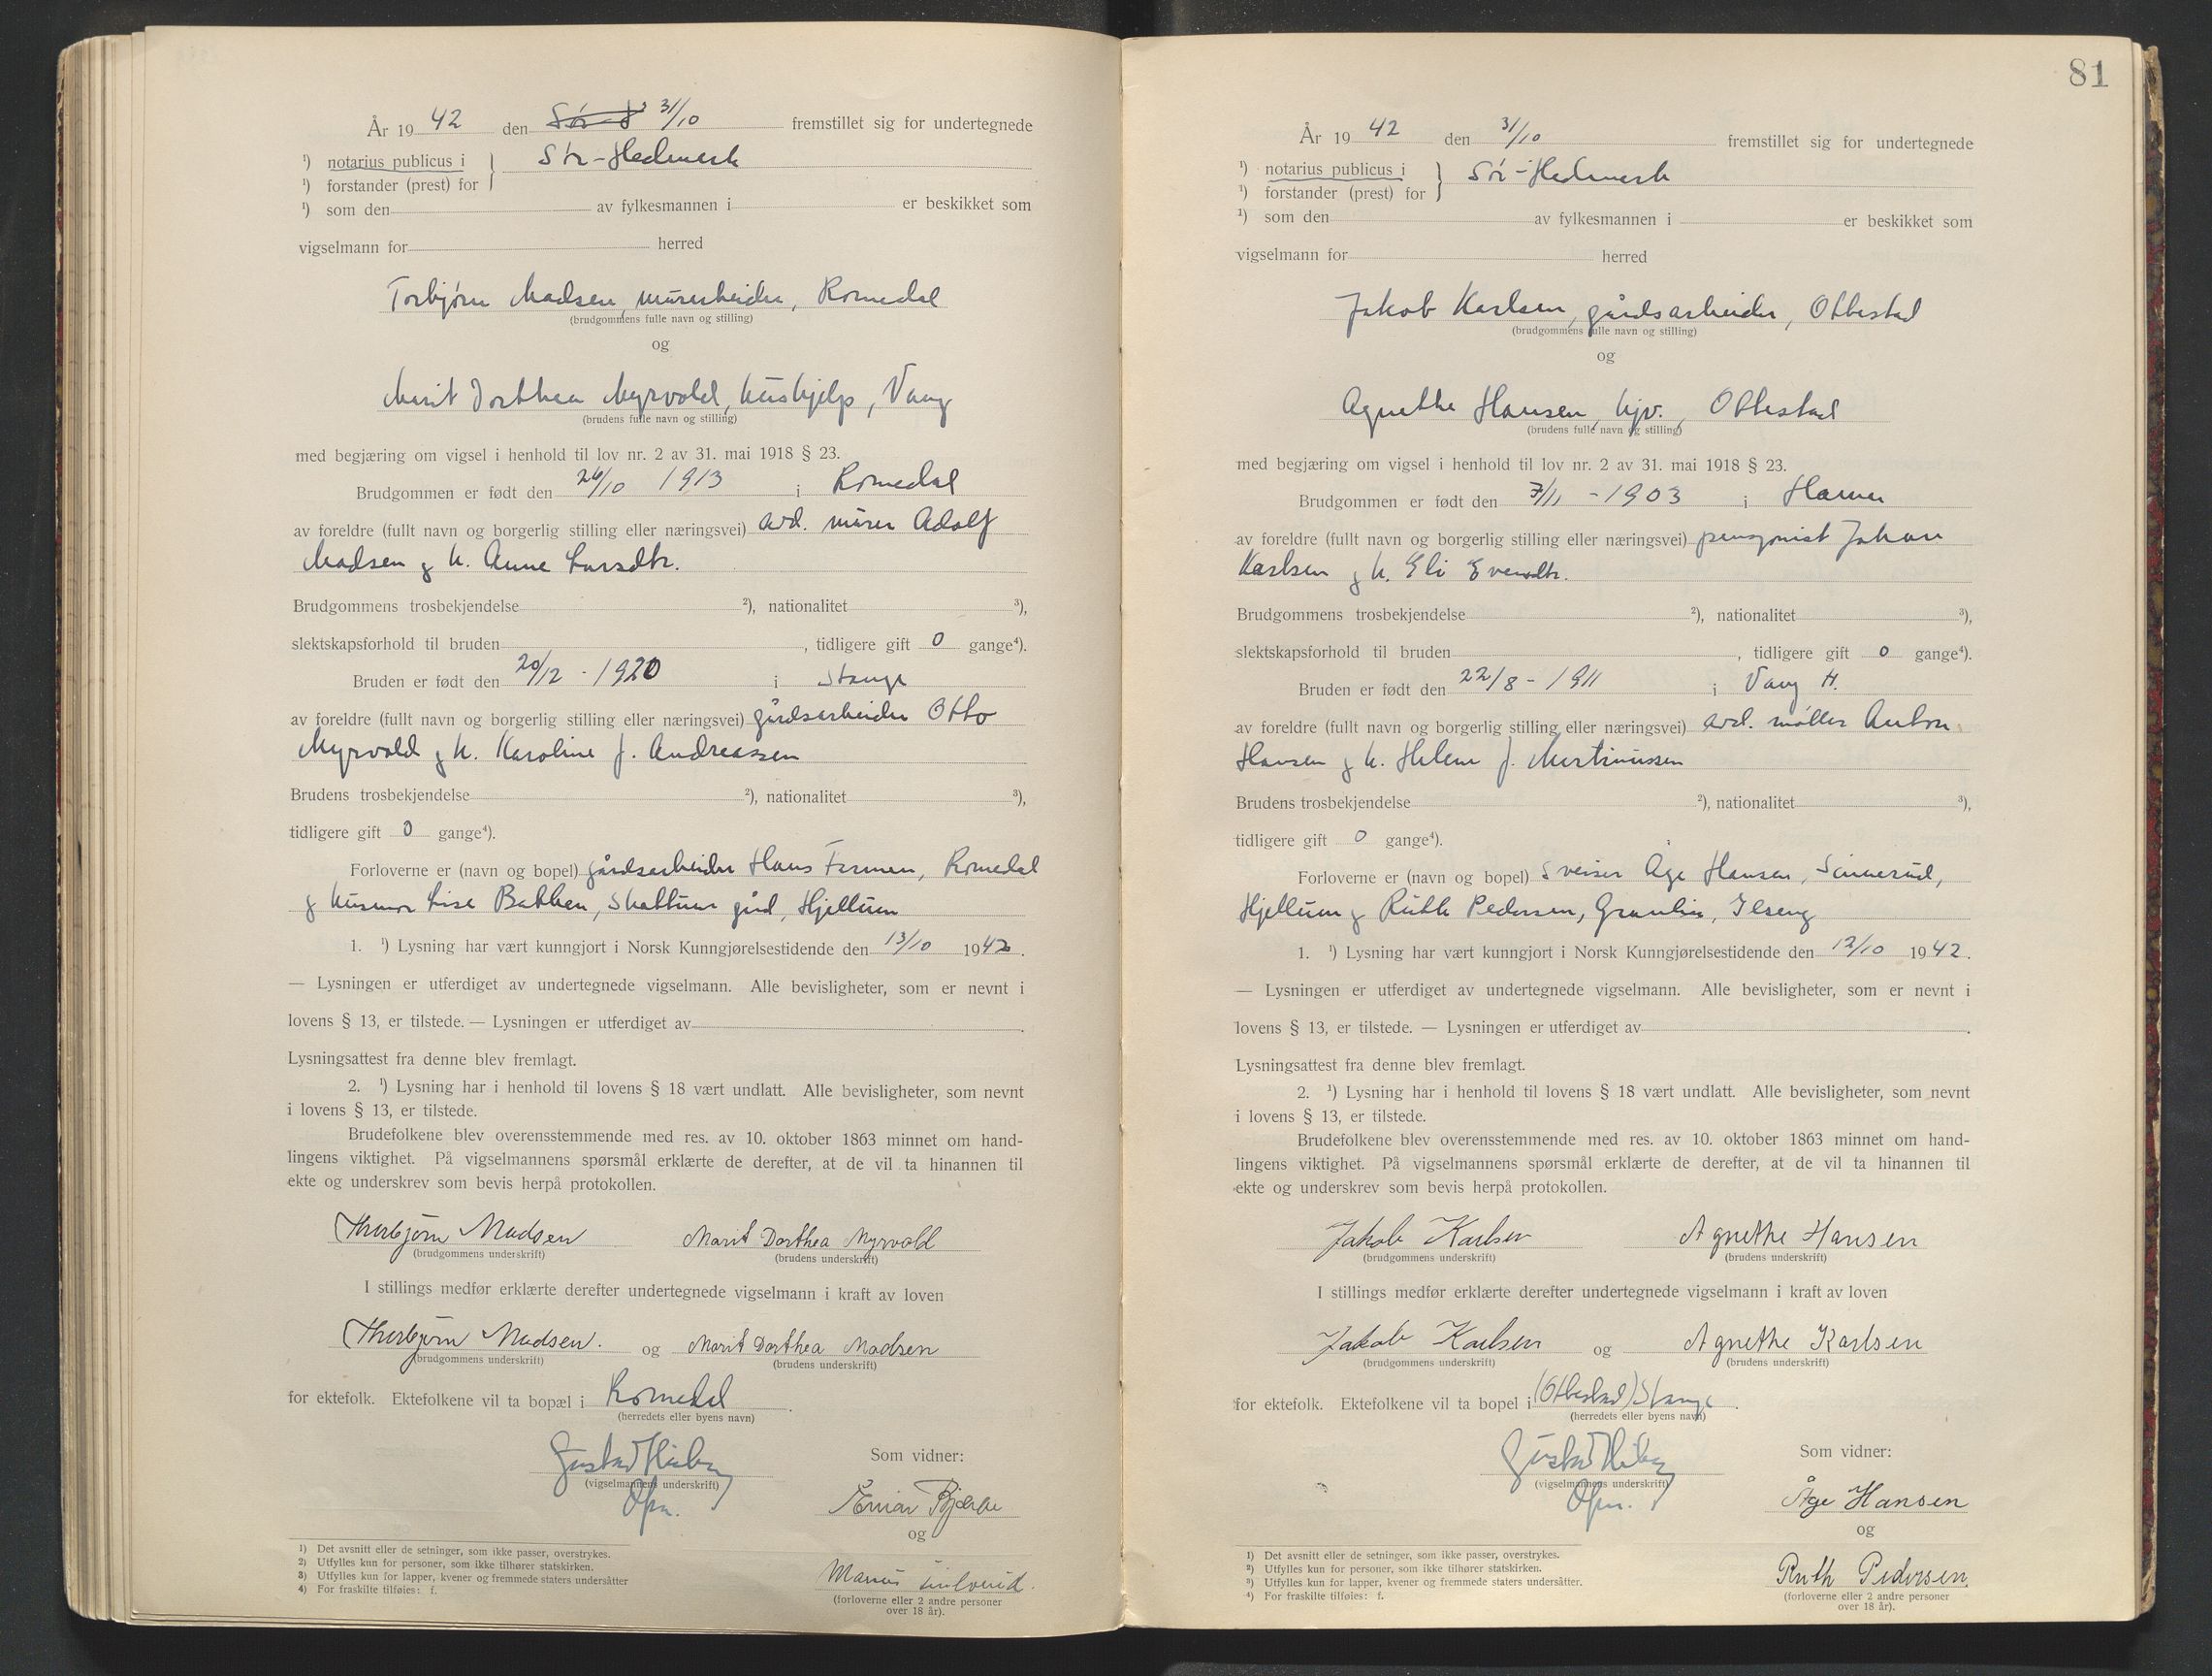 År 19 42 den Sør-H 31/10 fremstillet sig for undertegnede
¹) notarius publicus i } Sør-Hedmark
¹) forstander (prest) for
¹) som den av fylkesmannen i er beskikket som
vigselmann for herred
Torbjørn Madsen, murarbeider, Romedal
(brudgommens fulle navn og stilling)
og
Marit Dorthea Myrvold, hushjelp, Vang
(brudens fulle navn og stilling)
med begjæring om vigsel i henhold til lov nr. 2 av 31. mai 1918 § 23.
Brudgommen er født den 26/10 1913 i Romedal
av foreldre (fullt navn og borgerlig stilling eller næringsvei) avd. murer Adolf
Madsen og h. Anne Larsdtr.
Brudgommens trosbekjendelse ²), nationalitet ³),
slektskapsforhold til bruden , tidligere gift 0 gange⁴).
Bruden er født den 20/12 - 1920 i Stange
av foreldre (fullt navn og borgerlig stilling eller næringsvei) gårdsarbeider Otto
Myrvold og h. Karoline f. Andreassen
Brudens trosbekjendelse ²), nationalitet ³),
tidligere gift 0 gange⁴).
Forloverne er (navn og bopel) gårdsarbeider Hans Farmen, Romedal
og husmor Lise Bakken, Skattum gård, Hjellum
1. ¹) Lysning har vært kunngjort i Norsk Kunngjørelsestidende den 13/10 1942.
— Lysningen er utferdiget av undertegnede vigselmann. Alle bevisligheter, som er nevnt i
lovens § 13, er tilstede. — Lysningen er utferdiget av .
Lysningsattest fra denne blev fremlagt.
2. ¹) Lysning har i henhold til lovens § 18 vært undlatt. Alle bevisligheter, som nevnt
i lovens § 13, er tilstede.
Brudefolkene blev overensstemmende med res. av 10. oktober 1863 minnet om hand-
lingens viktighet. På vigselmannens spørsmål erklærte de derefter, at de vil ta hinannen til
ekte og underskrev som bevis herpå protokollen.
Thorbjørn Madsen Marit Dorthea Myrvold
(brudgommens underskrift) (brudens underskrift)
I stillings medfør erklærte derefter undertegnede vigselmann i kraft av loven
Thorbjørn Madsen. og Marit Dorthea Madsen
(brudgommens underskrift) (brudens underskrift)
for ektefolk. Ektefolkene vil ta bopæl i Romedal .
(herredets eller byens navn)
Som vidner:
(vigselmannens underskrift)
Einar Bjerke
og
Marius
(forloverne eller 2 andre personer
over 18 år).
1) Det avsnitt eller de setninger, som ikke passer, overstrykes.
2) Utfylles kun for personer, som ikke tilhører statskirken.
3) Utfylles kun for lapper, kvener og fremmede staters undersåtter
4) For fraskilte tilføies: f.
81
År 19 42 den 31/10 fremstillet sig for undertegnede
¹) notarius publicus i } Sør-Hedmark
¹) forstander (prest) for
¹) som den av fylkesmannen i er beskikket som
vigselmann for herred
Jakob Karlsen, gårdsarbeider, Ottestad
(brudgommens fulle navn og stilling)
og
Agnethe Hansen, hjv., Ottestad
(brudens fulle navn og stilling)
med begjæring om vigsel i henhold til lov nr. 2 av 31. mai 1918 § 23.
Brudgommen er født den 7/11 - 1903 i Hamar
av foreldre (fullt navn og borgerlig stilling eller næringsvei) pensjonist Johan
Karlsen og h. Eli Evensdtr.
Brudgommens trosbekjendelse ²), nationalitet ³),
slektskapsforhold til bruden , tidligere gift 0 gange⁴).
Bruden er født den 22/8 - 1911 i Vang H.
av foreldre (fullt navn og borgerlig stilling eller næringsvei) avd. møller Anton
Hansen og h. Helene f. Martinussen
Brudens trosbekjendelse ²), nationalitet ³),
tidligere gift 0 gange⁴).
Forloverne er (navn og bopel) Sveiser Åge Hansen, Sinnerud,
Hjellum og Ruth Pedersen, Granlia, Ilseng
1. ¹) Lysning har vært kunngjort i Norsk Kunngjørelsestidende den 12/10 1942.
— Lysningen er utferdiget av undertegnede vigselmann. Alle bevisligheter, som er nevnt i
lovens § 13, er tilstede. — Lysningen er utferdiget av .
Lysningsattest fra denne blev fremlagt.
2. ¹) Lysning har i henhold til lovens § 18 vært undlatt. Alle bevisligheter, som nevnt
i lovens § 13, er tilstede.
Brudefolkene blev overensstemmende med res. av 10. oktober 1863 minnet om hand-
lingens viktighet. På vigselmannens spørsmål erklærte de derefter, at de vil ta hinannen til
ekte og underskrev som bevis herpå protokollen.
Jakob Karlsen Agnethe Hansen
(brudgommens underskrift) (brudens underskrift)
I stillings medfør erklærte derefter undertegnede vigselmann i kraft av loven
Jakob Karlsen og Agnethe Karlsen
(brudgommens underskrift) (brudens underskrift)
for ektefolk. Ektefolkene vil ta bopel i (Ottestad) Stange .
(herredets eller byens navn)
Som vidner:
(vigselmannens underskrift)
Åge Hansen
og
Ruth Pedersen.
(forloverne eller 2 andre personer
over 18 år).
1) Det avsnitt eller de setninger, som ikke passer, overstrykes.
2) Utfylles kun for personer, som ikke tilhører statskirken.
3) Utfylles kun for lapper, kvener og fremmede staters undersåtter.
4) For fraskilte tilføies: f.